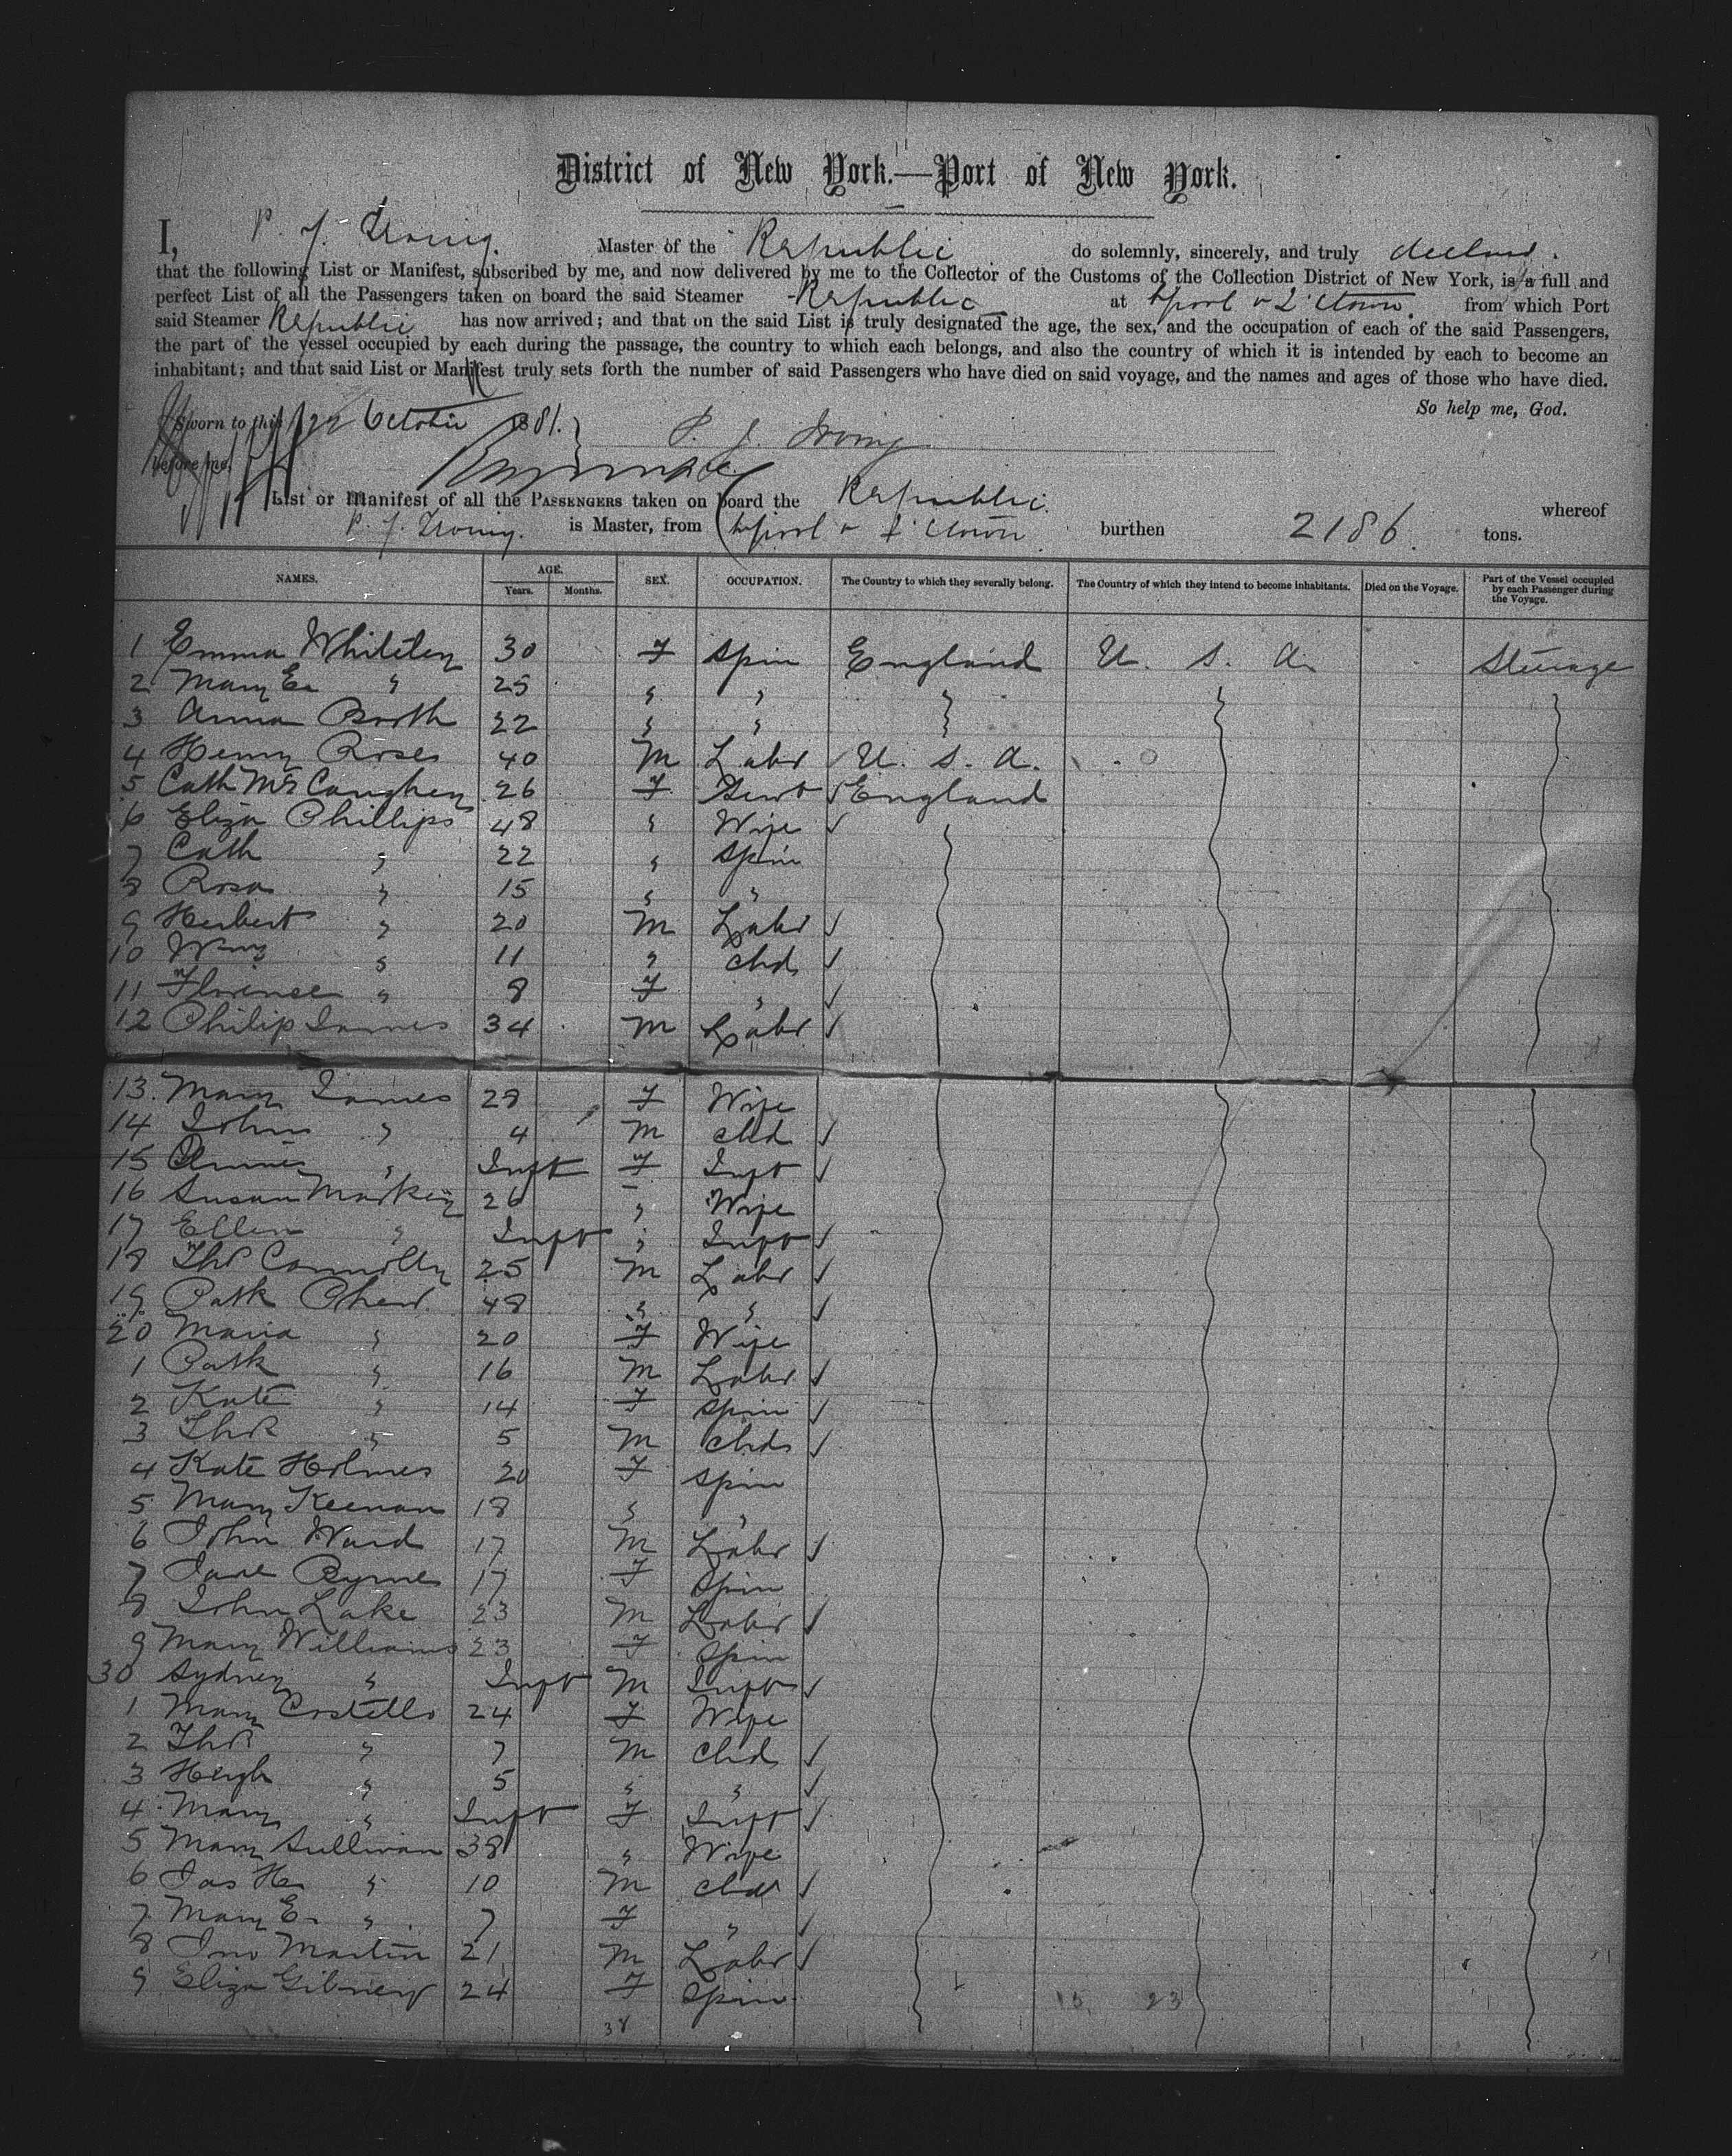 District of New York.—Port of New York.
I, P. J. Irving. Master of the Republic do solemnly, sincerely, and truly declare.
that the following List or Manifest, subscribed by me, and now delivered by me to the Collector of the Customs of the Collection District of New York, is a full and
perfect List of all the Passengers taken on board the said Steamer Republic at Lpool & Q'town. from which Port
said Steamer Republic has now arrived; and that on the said List is truly designated the age, the sex, and the occupation of each of the said Passengers,
the part of the vessel occupied by each during the passage, the country to which each belongs, and also the country of which it is intended by each to become an
inhabitant; and that said List or Manifest truly sets forth the number of said Passengers who have died on said voyage, and the names and ages of those who have died.
So help me, God.
Sworn to this 22 October 1881. P. J. Irving
before me,
List or Manifest of all the PASSENGERS taken on board the Republic. whereof
P. J. Irving. is Master, from Lpool & Q'town burthen 2186. tons.
NAMES. AGE. Years. Months. SEX. OCCUPATION. The Country to which they severally belong. The Country of which they intend to become inhabitants. Died on the Voyage. Part of the Vessel occupied by each Passenger during the Voyage.
1 Emma Whiteley 30 F Spin England U. S. A. Steerage
2 Mary E. " 25 " " " " "
3 Anna Booth 22 " " "
4 Henry Roses 40 M Labr U. S. A.
5 Cath McCaughey 26 F Servt England
6 Eliza Phillips 48 " Wife
7 Cath " 22 " Spin
8 Rosa " 15 " "
9 Herbert " 20 M Labr
10 Wm " 11 " chd
11 Florence " 8 F "
12 Philip James 34 M Labr
13. Mary James 28 F Wife
14 John " 4 M chd
15 Annie " Inft F Inft
16 Susan Markey 26 " Wife
17 Ellen " Inft " Inft
18 Thos Connolly 25 M Labr
19 Patk 48 " "
20 Maria " 20 F Wife
1 Patk " 16 M Labr
2 Kate " 14 F Spin
3 Thos " 5 M chd
4 Kate Holmes 20 F Spin
5 Mary Keenan 18 " "
6 John Ward 17 M Labr
7 Jane Byrne 17 F Spin
8 John Lake 23 M Labr
9 Mary Williams 23 F Spin
30 Sydney " Inft M Inft
1 Mary Costello 24 F Wife
2 Thos " 7 M chd
3 Hugh " 5 " "
4 Mary " Inft F Inft
5 Mary Sullivan 38 " Wife
6 Jas Hy " 10 M chd
7 Mary E. " 7 F "
8 Jno Martin 21 M Labr
9 Eliza Gibney 24 F Spin
38 15, 23